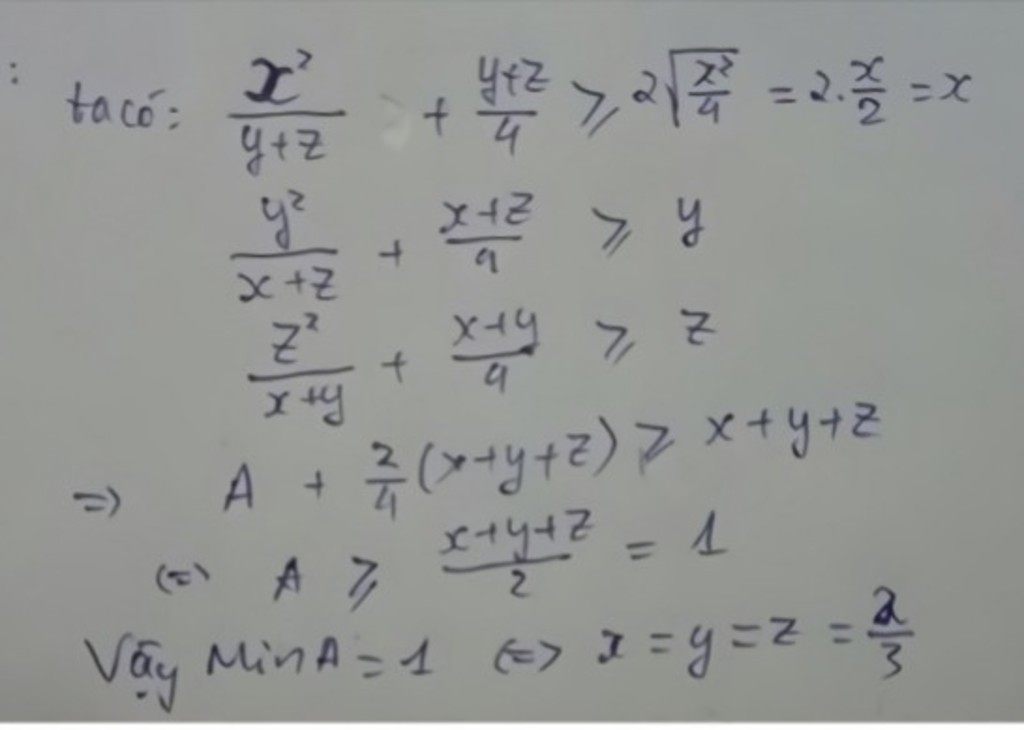 : ta có: x²/(y+z) + (y+z)/4 ⩾ 2√(x²/4) = 2.x/2 = x
y²/(x+z) + (x+z)/4 ⩾ y
z²/(x+y) + (x+y)/4 ⩾ z
=> A + 2/4(x+y+z) ⩾ x+y+z
<=> A ⩾ (x+y+z)/2 = 1
Vậy MinA = 1 <=> x = y = z = 2/3